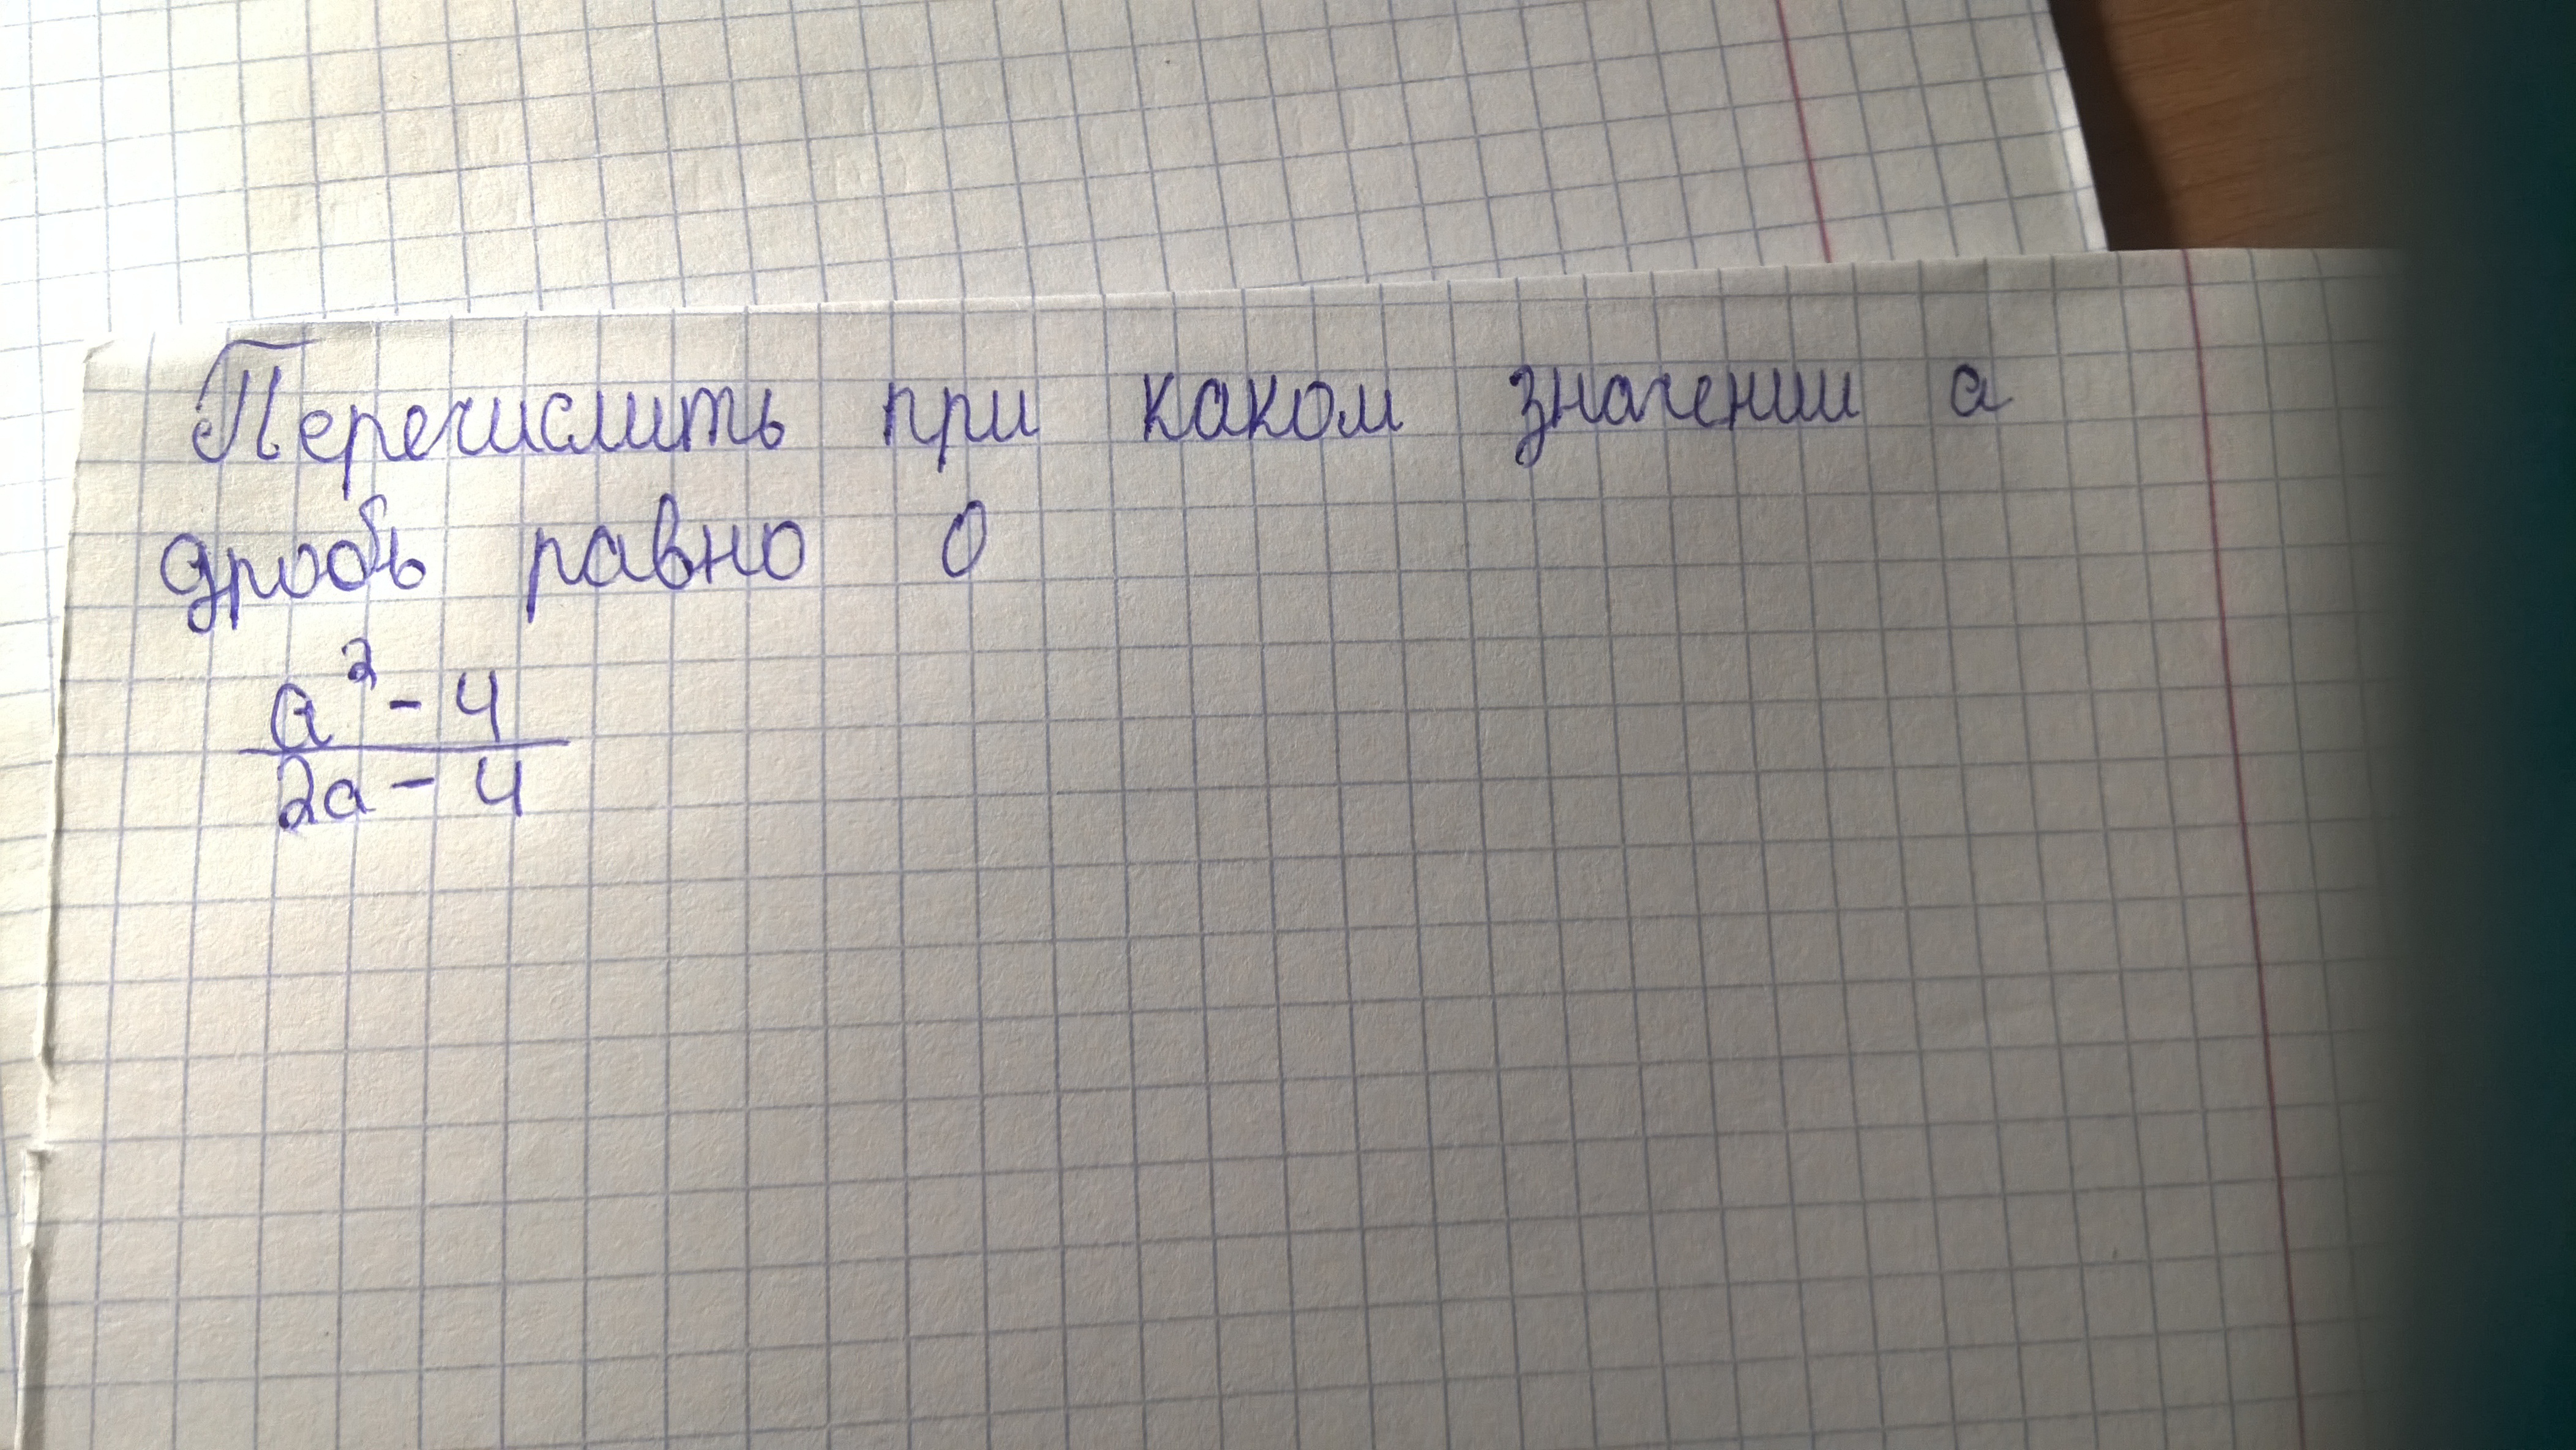 Перечислить при каком значении а
дробь равно 0
a² - 4
2a - 4